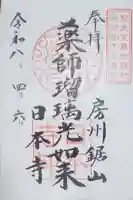 奉拝
房州鋸山
薬師瑠璃光如来
日本寺
令和八、四、六